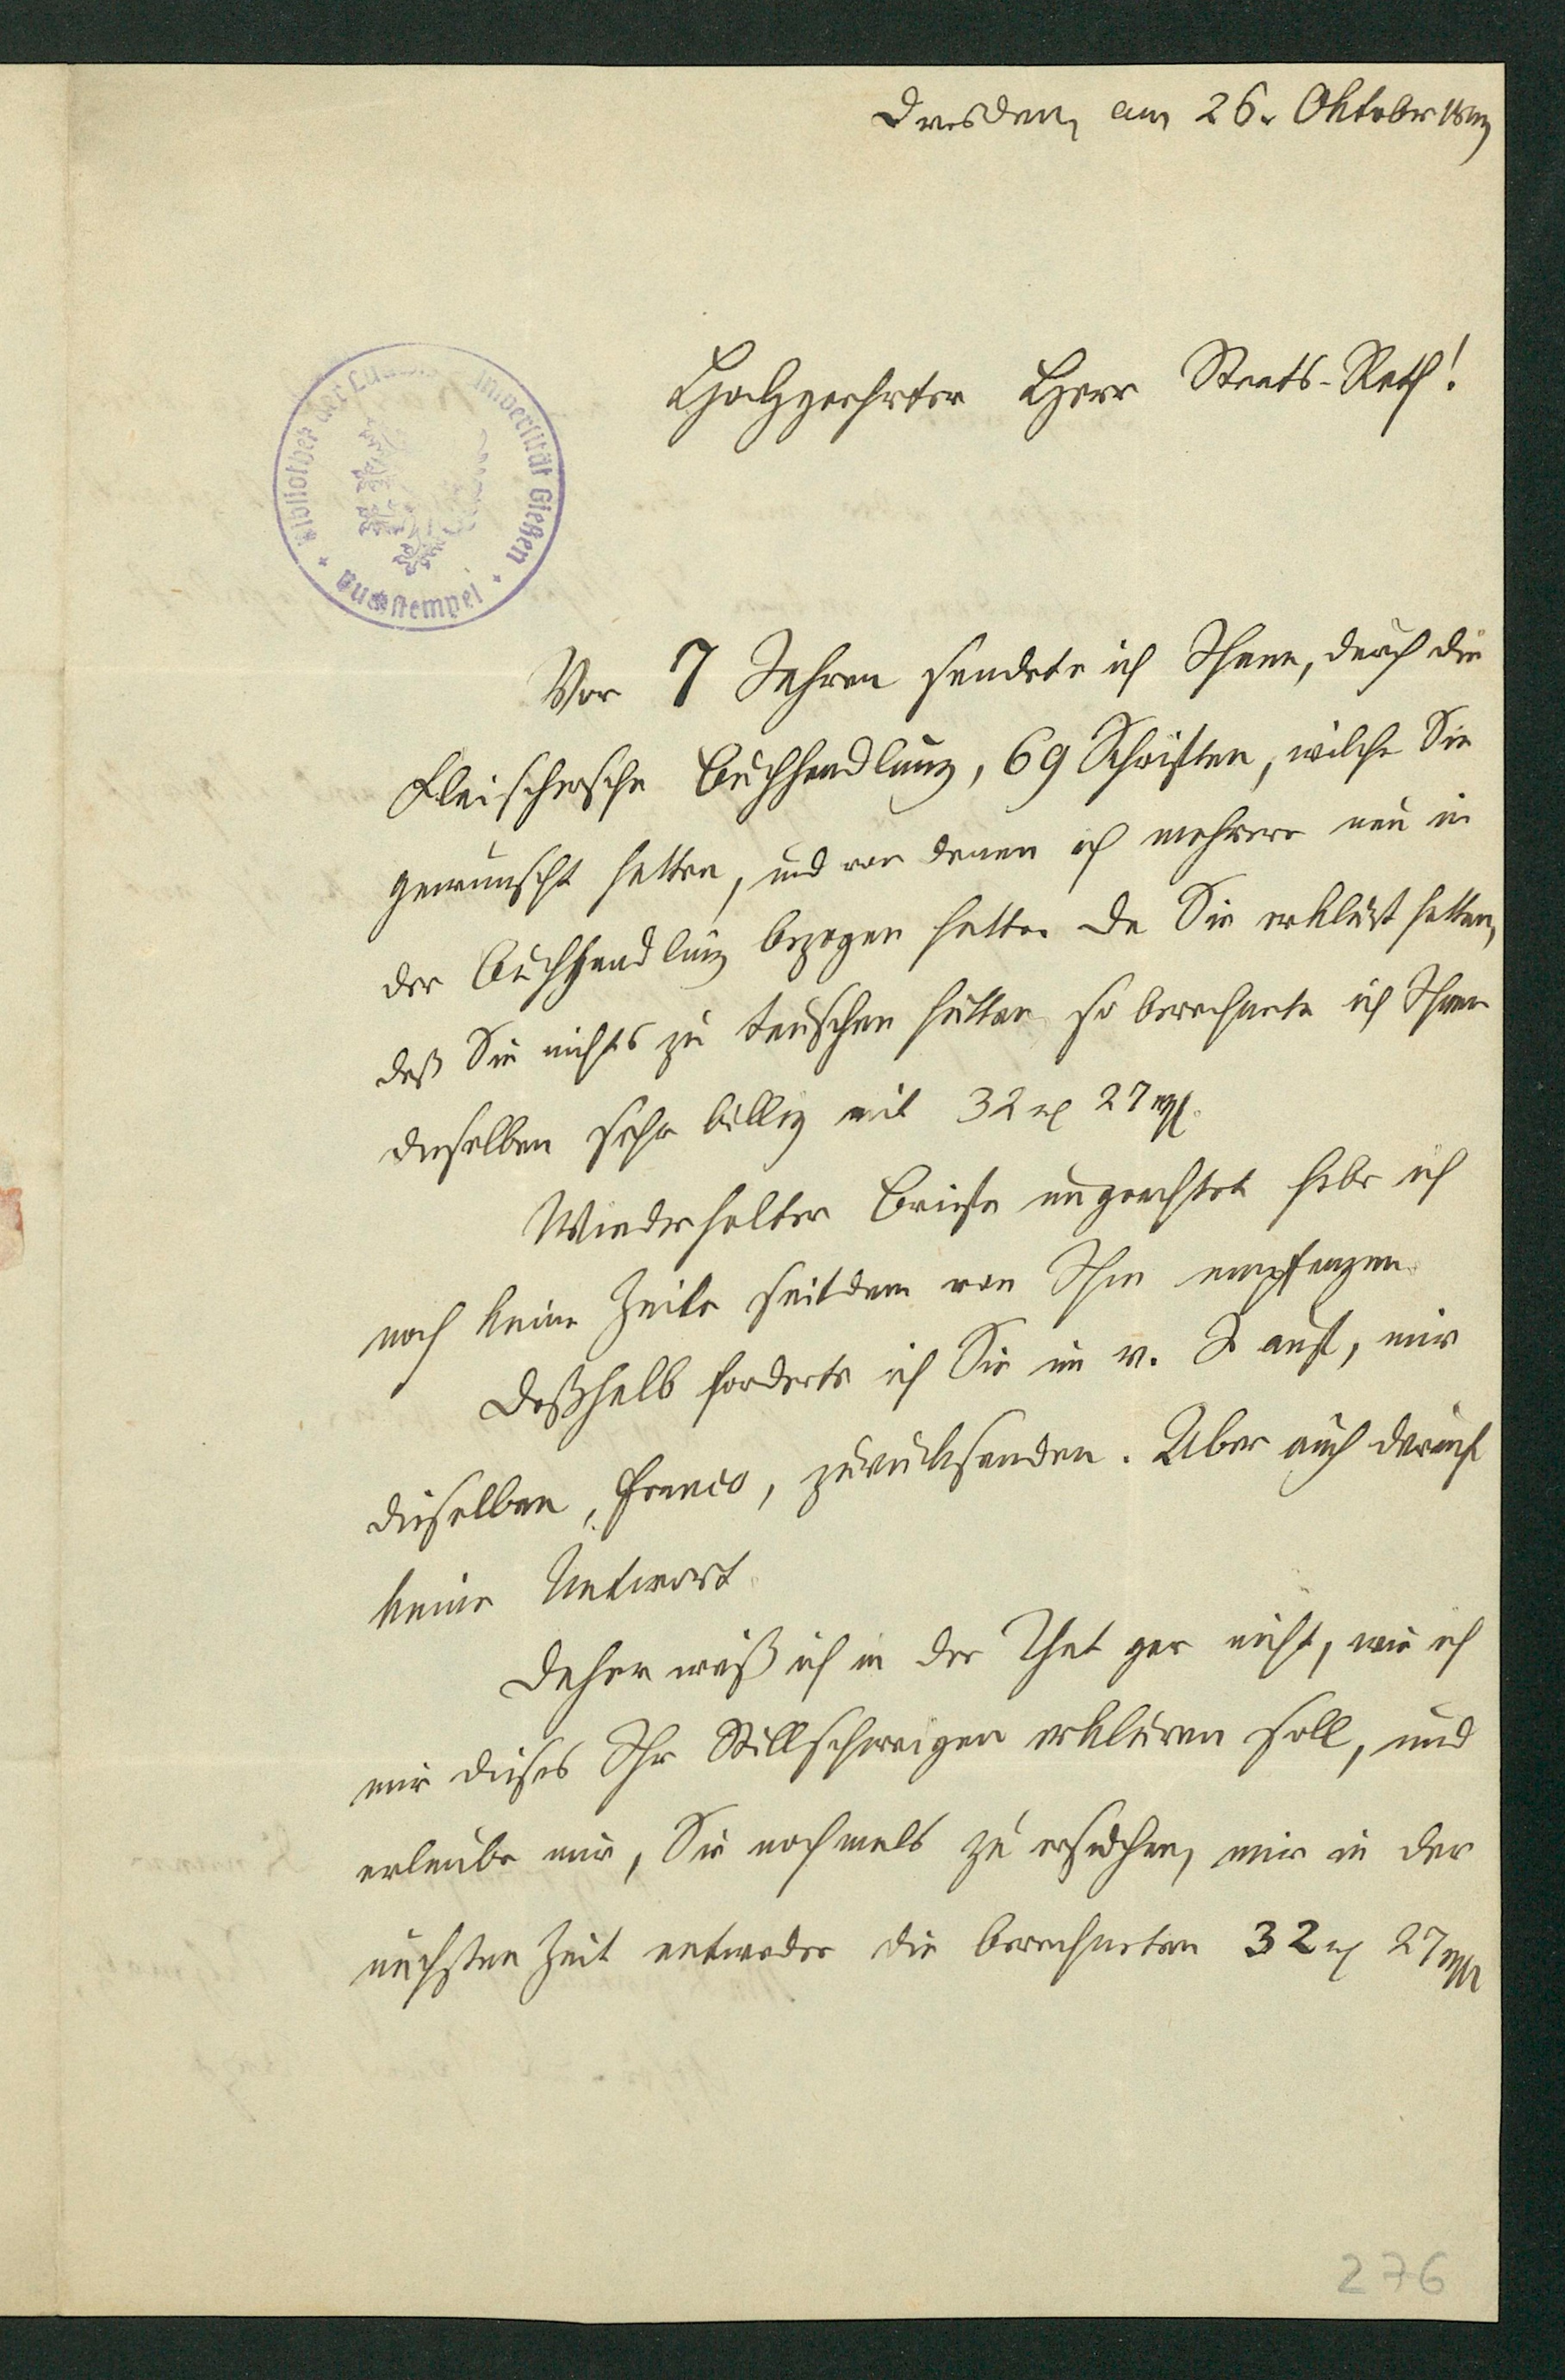 Dresden, am 26. Oktober
Hochgeehrter Herr Staats-Rath!
Bibliothek der Universität Gießen
Vor 7 Jahren sendete ich Ihnen, durch die
Fleischersche Buchhandlung, 69 Schriften, welche Sie
gewünscht hatten, und von denen ich mehrere neu in
der Buchhandlung bezogen hatte. Da Sie erklärt hatten,
daß Sie nichts zu tauschen hätten so berechnete ich Ihnen
dieselben sehr billig mit 32 rℓ 27 ngl.
Wiederholter Briefe ungeachtet habe ich
noch keine Zeile seitdem von Ihnen empfangen.
Deßhalb forderte ich Sie im v. J. auf, mir
dieselben, franco, zurücksenden. Aber auch darauf
keine Antwort.
Daher weiß ich in der That gar nicht, wie ich
mir dieses Ihr Stillschweigen erklären soll, und
erlaube mir, Sie nochmals zu ersuchen, mir in der
nächsten Zeit entweder die berechneten 32 rℓ 27 ngl
276